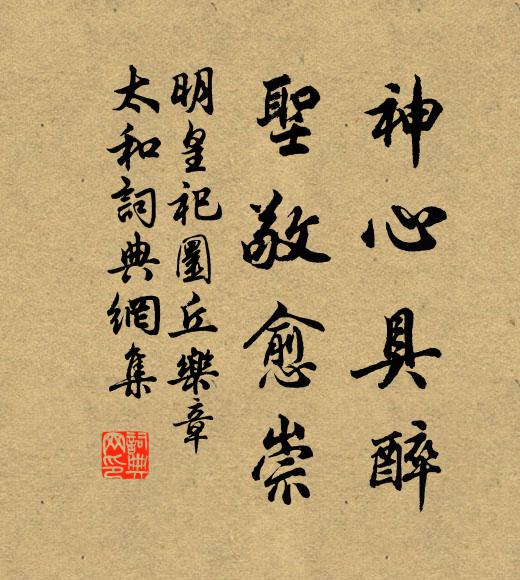 神心具醉
聖敬愈崇
明皇祀圜丘樂章
太和詞典網集
詞典网印